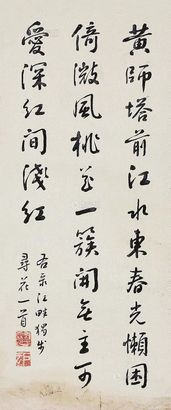 黃師塔前江水東春光懶困
倚微風桃花一簇開無主可
愛深紅間淺紅
江畔獨步
尋花一首